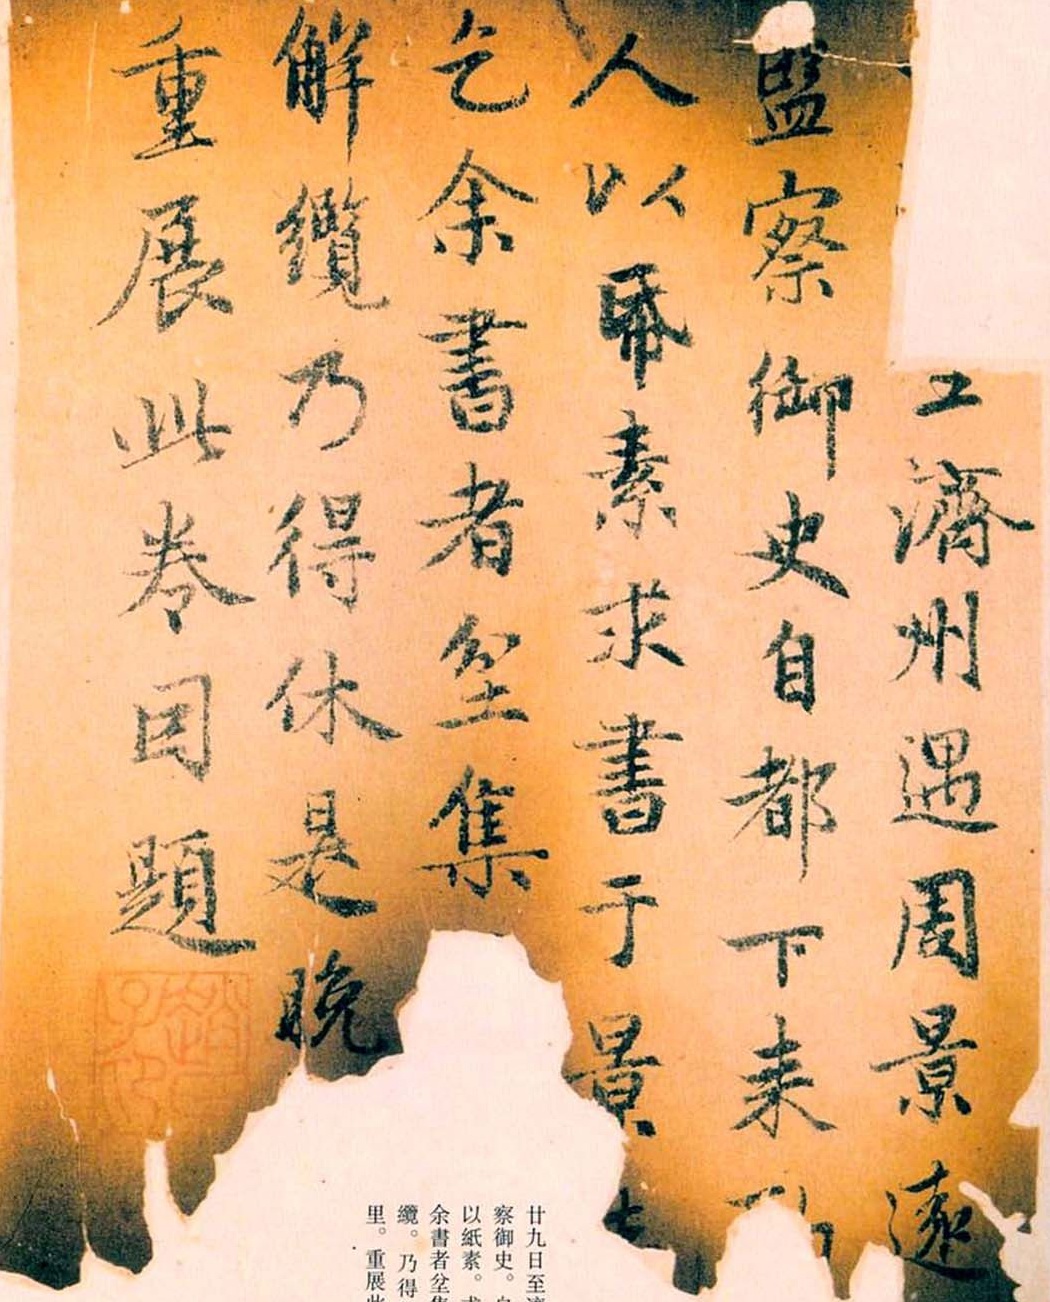 濟州遇周景遠
監察御史自都下来
人以帋素求書于景
乞余書者坌集
解纜乃得休是晚
重展此卷囙題
廿九日至濟
察御史。自
以紙素。求
余書者坌集
纜。乃得
里。重展此